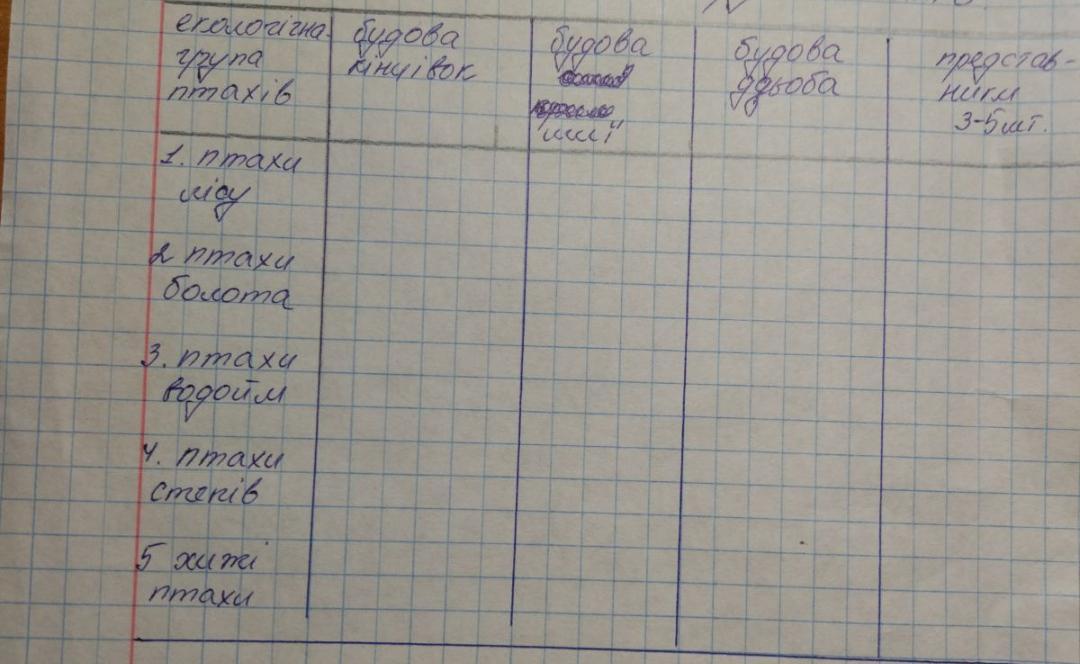 екологічна
група
птахів
будова
кінцівок
будова
шиї
будова
дзьоба
представ-
ники
3-5шт.
1. птахи
лісу
2 птахи
болота
3. птахи
водойм
4. птахи
степів
5 хижі
птахи